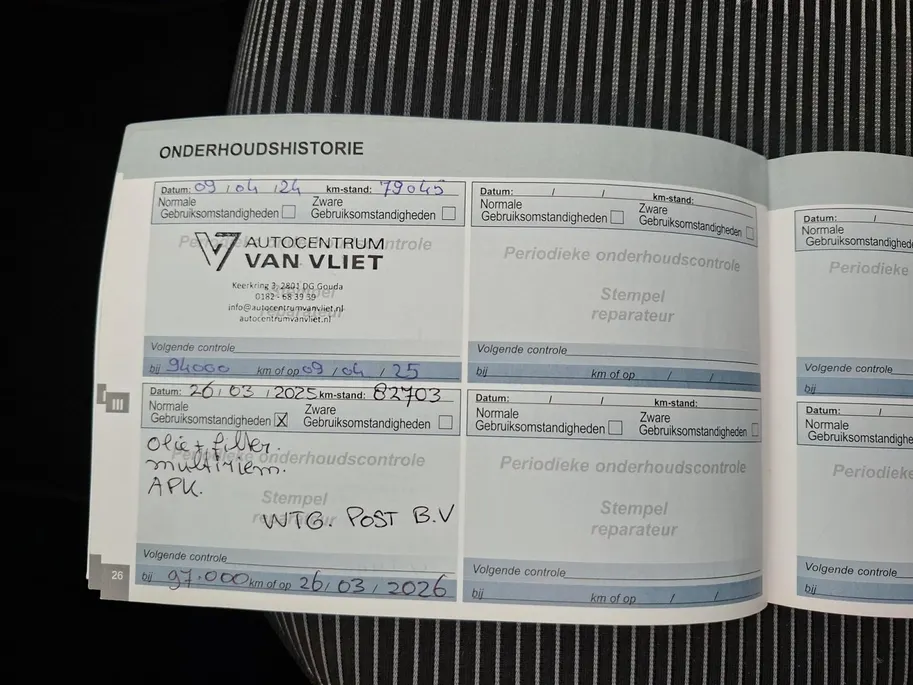 ONDERHOUDSHISTORIE
Datum: 09 / 04 / 24 km-stand: 79045
Normale Gebruiksomstandigheden Zware Gebruiksomstandigheden
Periodieke onderhoudscontrole
AUTOCENTRUM
VAN VLIET
Keerkring 3, 2801 DG Gouda
0182 - 68 39 39
info@autocentrumvanvliet.nl
autocentrumvanvliet.nl
Stempel
reparateur
Volgende controle
bij 94000 km of op 09 / 04 / 25
Datum: 26 / 03 / 2025 km-stand: 82703
Normale Gebruiksomstandigheden X Zware Gebruiksomstandigheden
Periodieke onderhoudscontrole
Olie + filter.
multiriem.
APK.
Stempel
reparateur
WTG. POST B.V
Volgende controle
bij 97.000 km of op 26 / 03 / 2026
III
26
Datum: / / km-stand:
Normale Gebruiksomstandigheden Zware Gebruiksomstandigheden
Periodieke onderhoudscontrole
Stempel
reparateur
Volgende controle
bij km of op / /
Datum: / / km-stand:
Normale Gebruiksomstandigheden Zware Gebruiksomstandigheden
Periodieke onderhoudscontrole
Stempel
reparateur
Volgende controle
bij km of op / /
Datum: /
Normale
Gebruiksomstandighede
Periodieke
Volgende controle
bij
Datum: /
Normale
Gebruiksomstandighede
Periodieke
Volgende controle
bij